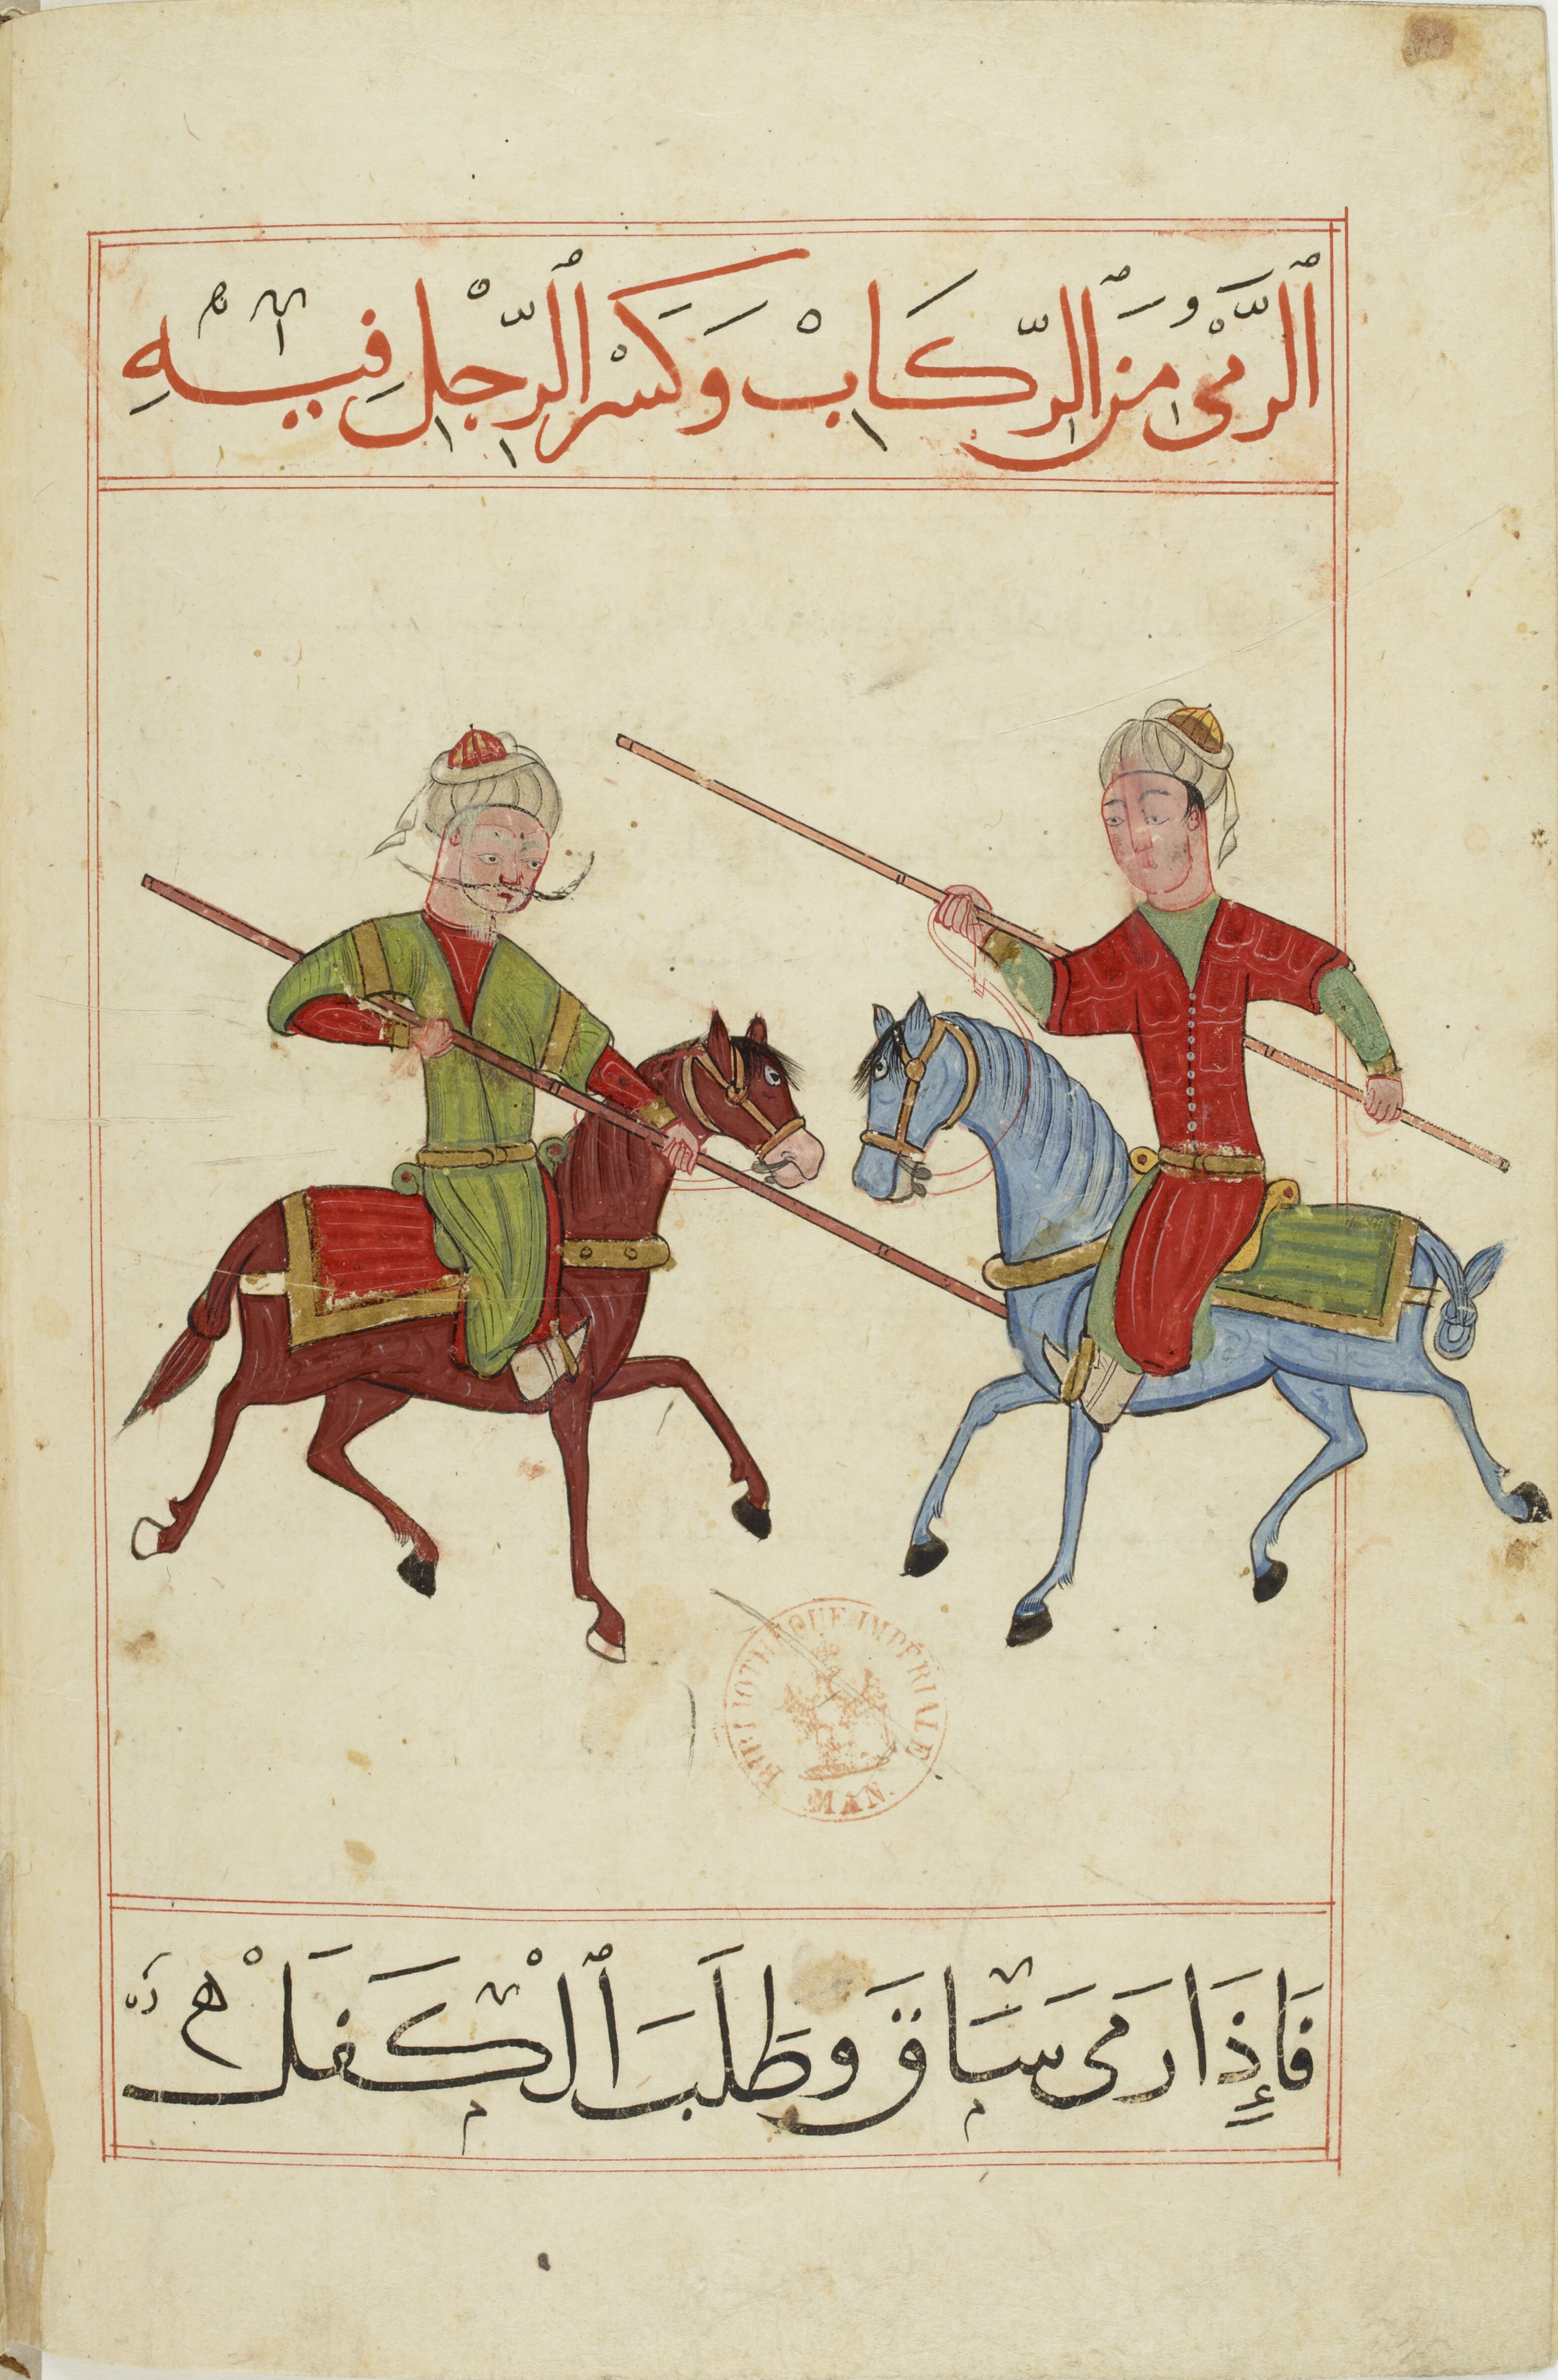 ٱلرَّمْيُ مِنَ ٱلرِّكَابْ وَكَسْرَ ٱلرِّجْلِ فِيْهِ
BIBLIOTHÈQUE IMPÉRIALE
MAN.
فَإِذَا رَمَى سَاقَ وَطَلَبَ ٱلْكَفَلْ